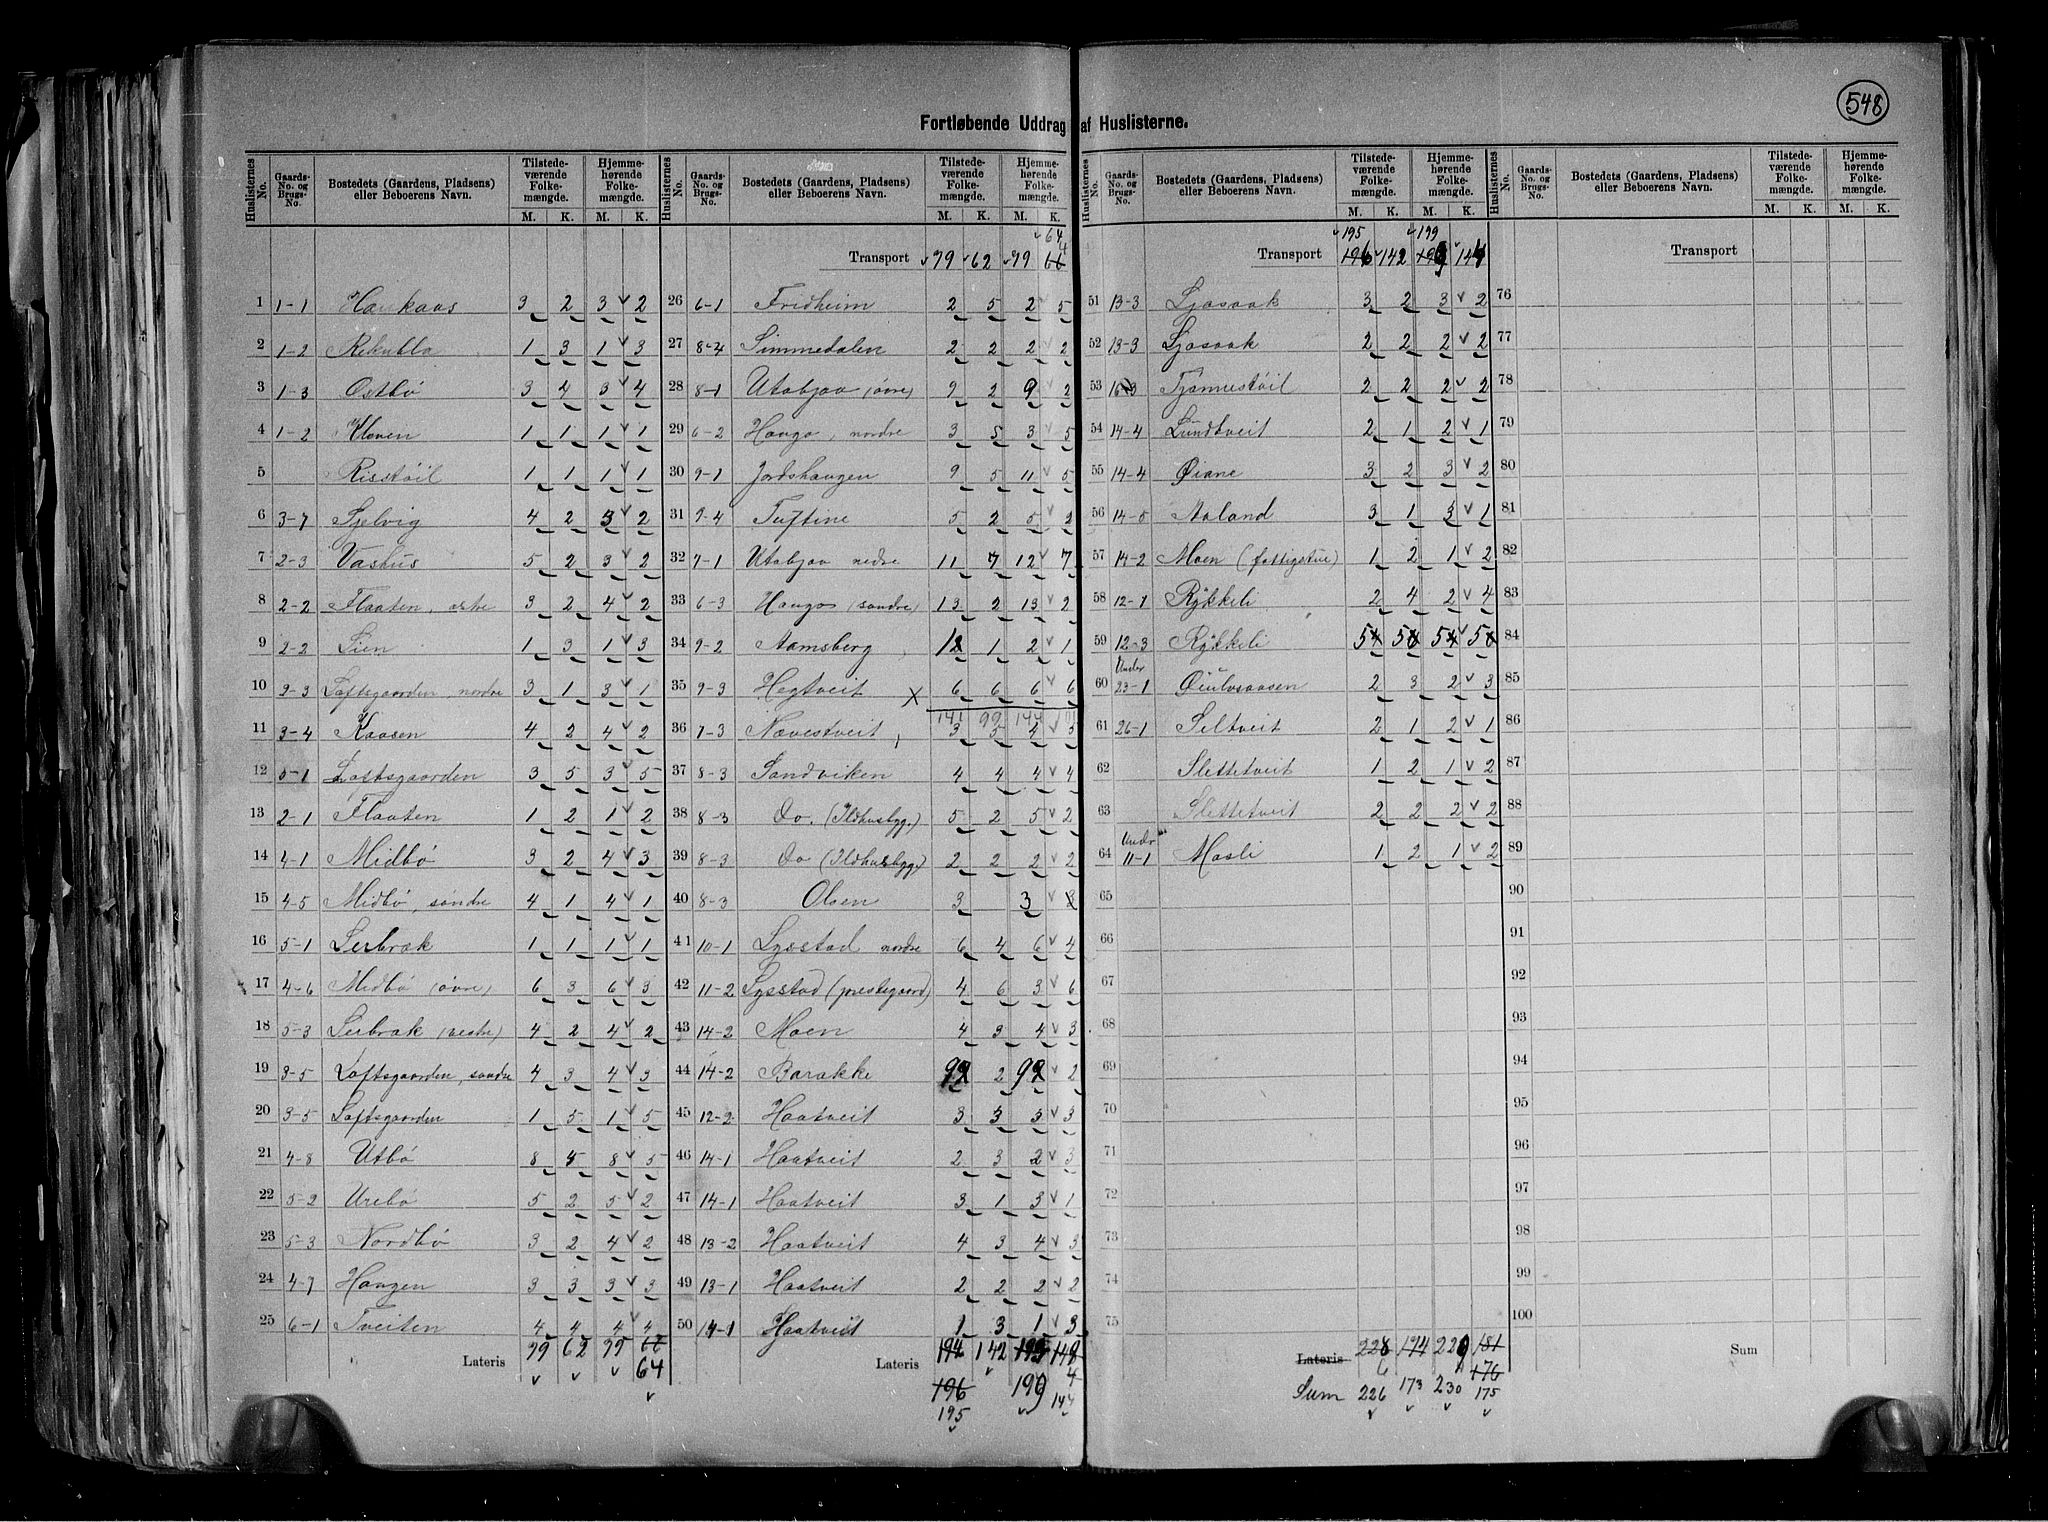 548
Fortløbende Uddrag af Huslisterne.
Huslisternes No. Gaards-No. og Brugs-No. Bostedets (Gaardens, Pladsens) eller Beboerens Navn. Tilstede-værende Folke-mængde. M. K. Hjemme-hørende Folke-mængde. M. K.
1 1-1 Haukaas 3 2 3 2
2 1-2 Rekubla 1 3 1 3
3 1-3 Ostbø 3 4 3 4
4 1-2 Kloven 1 1 1 1
5 Risstøil 1 1 1 1
6 3-7 Sjelvig 4 2 3 2
7 2-3 Vashus 5 2 3 2
8 2-2 Flaaten, østre 3 2 4 2
9 2-2 Lien 1 3 1 3
10 3-3 Loftsgaarden, nordre 3 1 3 1
11 3-4 Kaasen 4 2 4 2
12 Loftsgaarden 3 5 3 5
13 2-1 Flaaten 1 2 1 2
14 4-1 Midbø 3 2 4 3
15 4-5 Midbø, søndre 4 1 4 1
16 5-1 Lerbrak 1 1 1 1
17 4-6 Midbø (øvre) 6 3 6 3
18 5-3 Lerbrak (vestre) 4 2 4 2
19 3-5 Loftsgaarden, søndre 4 3 4 3
20 3-5 Loftsgaarden 1 5 1 5
21 4-8 Utbø 8 5 8 5
22 5-2 Urebø 5 2 5 2
23 5-3 Nordbø 3 2 4 2
24 4-7 Haugen 3 3 3 3
25 6-1 Tveiten 4 4 4 4
Lateris 79 62 79 64
Transport 79 62 79 64
26 6-1 Fridheim 2 5 2 5
27 8-4 Simmedalen 2 2 2 2
28 8-1 Utabjaa (øvre) 9 2 9 2
29 6-2 Haugo, nordre 3 5 3 5
30 9-1 Jordshaugen 9 5 11 5
31 9-4 Tuftine 5 2 5 2
32 7-1 Utabjaa nedre 11 7 12 7
33 6-3 Haugo (søndre) 13 2 13 2
34 9-2 Aamsberg 1 2 1
35 9-3 Hegtveit X 6 6 6 6
141 99 144
36 7-3 Navestveit 3 5 4 5
37 8-3 Sandviken 4 4 4 4
38 8-3 Do. (Ildhusbygn.) 5 2 5 2
39 8-3 Do (Ildhusbygn.) 2 2 2 2
40 8-3 Olsen 3 3
41 10-1 Lysstad nordre 6 4 6 4
42 11-2 Lysstad (prestegaard) 4 6 3 6
43 14-2 Moen 4 3 4 3
44 14-2 Barakke 9 2 9 2
45 12-2 Haatveit 3 3 3 3
46 14-1 Haatveit 2 3 2 3
47 14-1 Haatveit 3 1 3 1
48 13-2 Haatveit 4 3 4 3
49 13-1 Haatveit 2 2 2 2
50 14-1 Haatveit 1 3 1 3
Lateris 194 142 195 148
196 199 144
195
195 199
Transport 196 142 144
51 13-3 Ljosaak 3 2 3 2
52 13-3 Ljosaak 2 2 2 2
53 16-3 Tjønnestøil 2 2 2 2
54 14-4 Lundtveit 2 1 2 1
55 14-4 Øiane 3 2 3 2
56 Aaland 3 1 3 1
57 14-2 Moen (fattigstue) 1 2 1 2
58 12-1 Rykkeli 2 4 2 4
59 12-3 Rykkeli 5 5 5 5
60 Under 23-1 Øiulvsaasen 2 3 2 3
61 26-1 Seltveit 2 1 2 1
62 Slettetveit 1 2 1 2
63 Slettetveit 2 2 2 2
64 Under 11-1 Mosli 1 2 1 2
65
66
67
68
69
70
71
72
73
74
75
Lateris 228 174 229 181
176
Sum 226 173 230 175
Transport
76
77
78
79
80
81
82
83
84
85
86
87
88
89
90
91
92
93
94
95
96
97
98
99
100
Sum